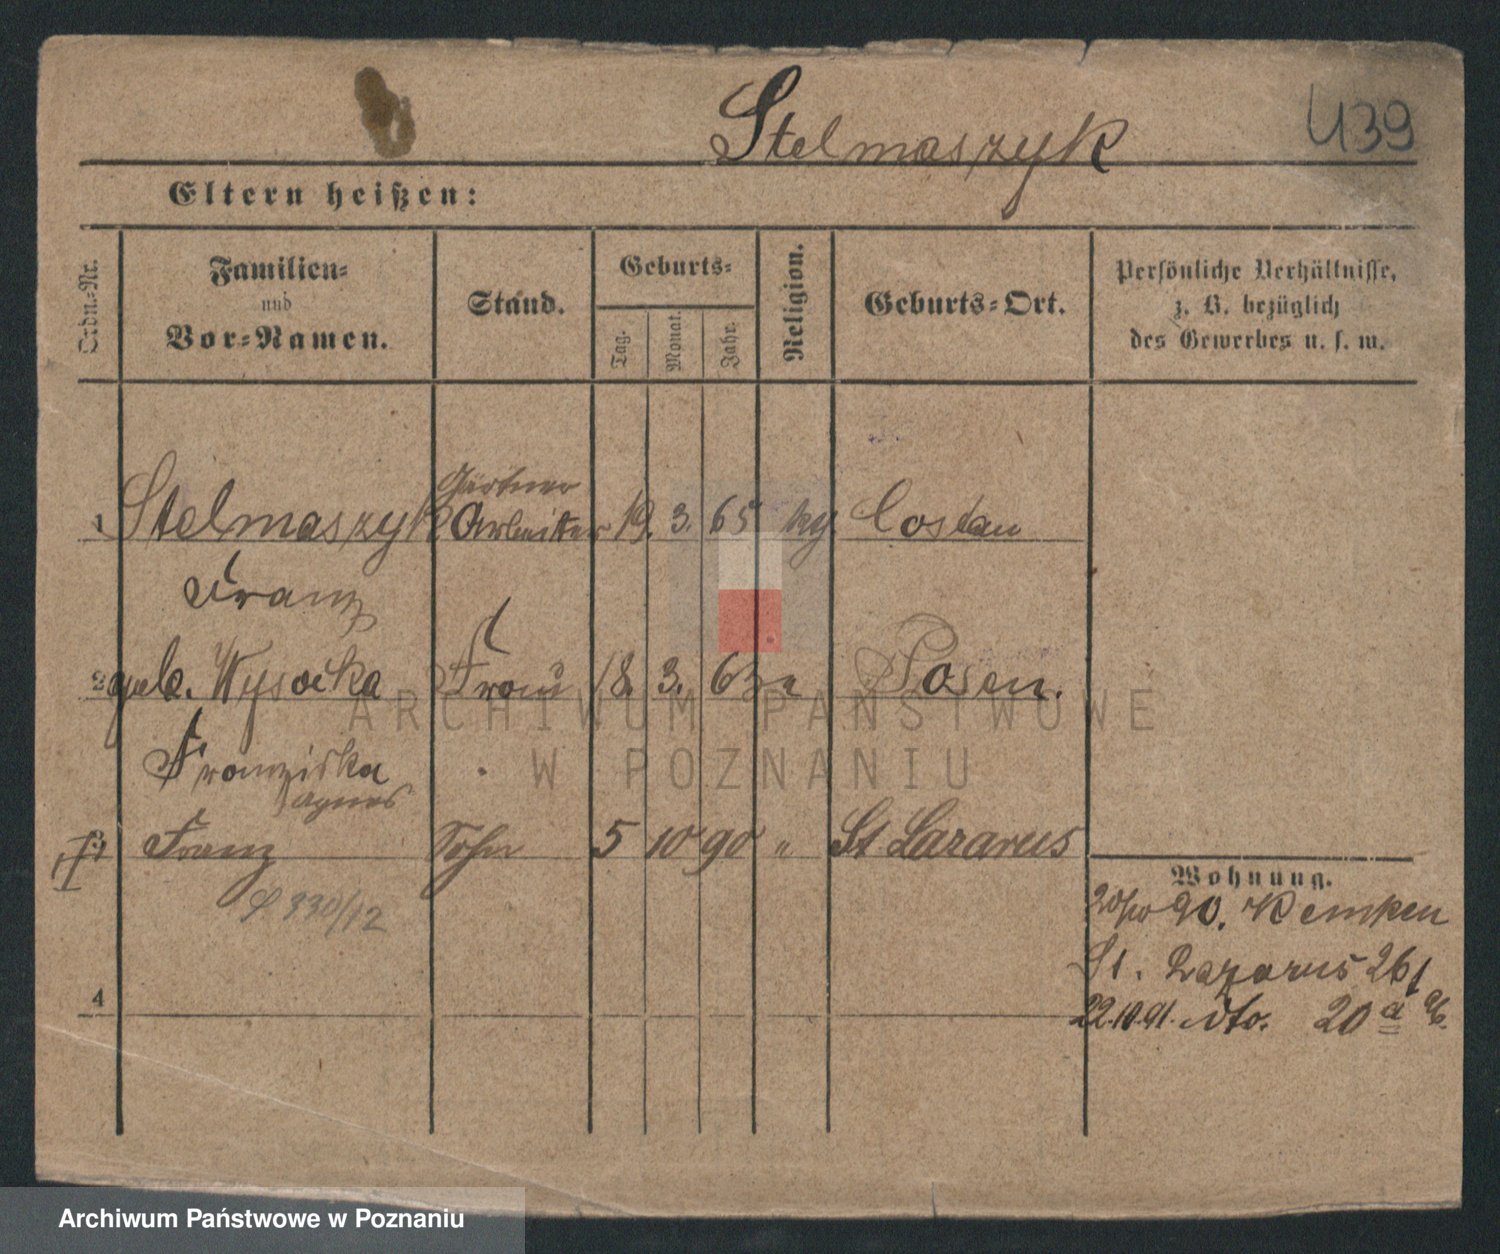 Stelmaszyk
439
Eltern heißen:
Ordn.-Nr.
Familien-
und
Vor-Namen.
Stand.
Geburts-
Tag.
Monat.
Jahr.
Religion.
Geburts-Ort.
Persönliche Verhältnisse,
z. B. bezüglich
des Gewerbes u. s. w.
Gärtner
1 Stelmaszyk Arbeiter 19. 3. 65 Costan
Franz
2 geb. Wysocka Frau 18. 3. 63 Posen.
Franziska
Agnes
3 Franz Sohn 5 10 90 " St Lazarus
330/12
4
Wohnung.
90.
St. Lazarus 261
22.10.91. dto. 20 a
ARCHIWUM PAŃSTWOWE
W POZNANIU
Archiwum Państwowe w Poznaniu